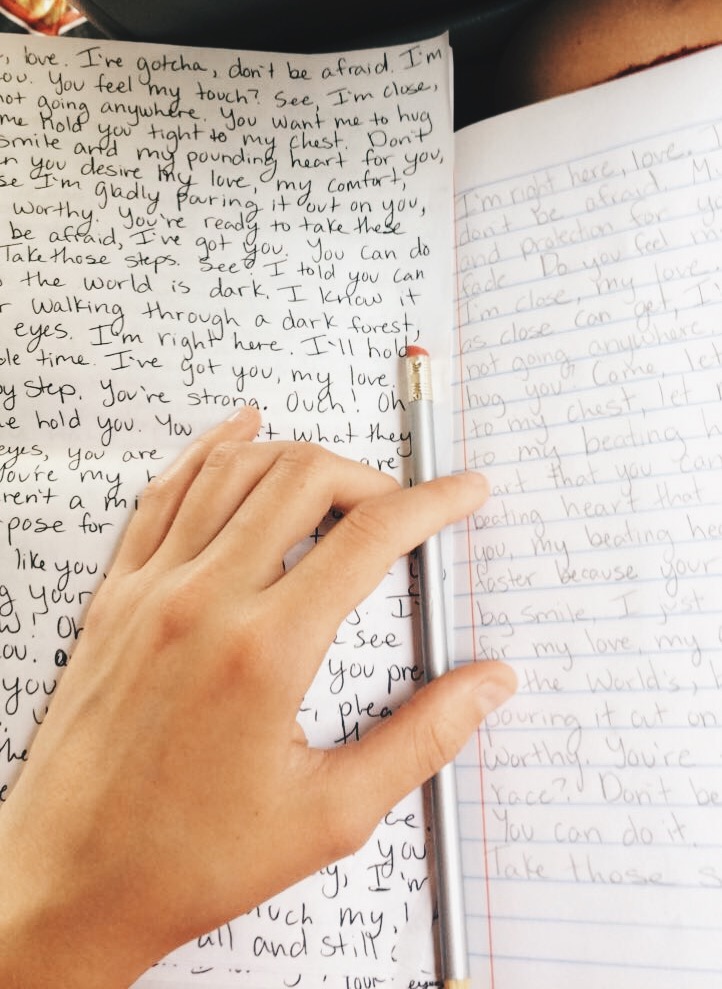 , love. I've gotcha, don't be afraid. I'm
ou. You feel my touch? See, I'm close,
not going anywhere. You want me to hug
me hold you tight to my chest. Don't
smile and my pounding heart for you,
n you desire my love, my comfort,
se I'm gladly pouring it out on you,
worthy. You're ready to take these
be afraid, I've got you. You can do
Take those steps. See? I told you can
the world is dark. I know it
r walking through a dark forest,
eyes. I'm right here. I'll hold
ole time. I've got you, my love.
by step. You're strong. Ouch! Oh
e hold you. You t what they
eyes, you are are
You're my
ren't a mi
pose for
like you,
g your
w! Oh I
ou. see
you you pre
, plea
the
ce.
you
y, I'm
much my
all and still
your
I'm right here, love. I
don't be afraid. M
and protection for yo
fade. Do you feel m
I'm close, my love.
as close can get, I'
not going anywhere.
hug you? Come, let
to my chest, let
to my beating h
art that you can
beating heart that
you, my beating hea
faster because your
big smile. I just
for my love, my
the World's, b
pouring it out on
worthy. You're
race? Don't be
You can do it.
Take those s